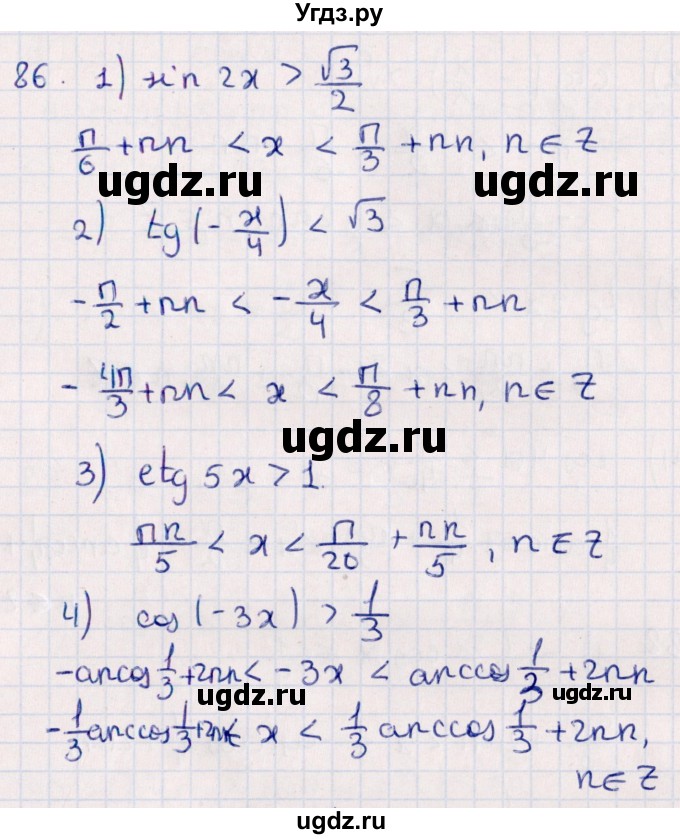 Угдз.ру
86. 1) sin 2x > √3/2
π/6 + πn < x < π/3 + πn, n ∈ Z
ugdz.ru ugdz.ru
2) tg(-x/4) < √3
-π/2 + πn < -x/4 < π/3 + πn
-4π/3 + πn < x < π/8 + πn, n ∈ Z
ugdz.ru
3) ctg 5x > 1.
πn/5 < x < π/20 + πn/5, n ∈ Z
ugdz.ru
4) cos(-3x) > 1/3
-arccos 1/3 + 2πn < -3x < arccos 1/3 + 2πn
ugdz.ru ugdz.ru
-1/3 arccos 1/3 + 2πn < x < 1/3 arccos 1/3 + 2πn,
n ∈ Z
ugdz.ru